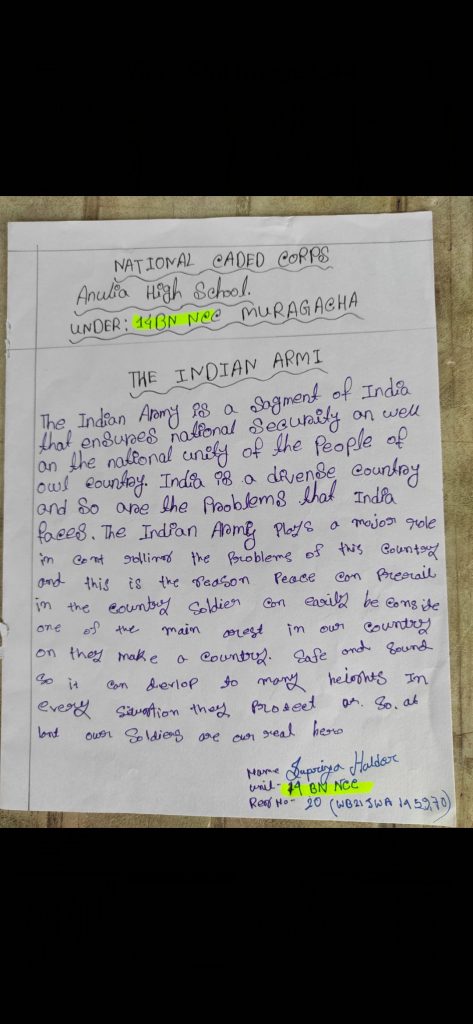 NATIONAL CADED CORPS
Anulia High School.
UNDER: 14BN NCC MURAGACHA
THE INDIAN ARMI
The Indian Army is a sagment of India
that ensures national Security an well
an the national unity of the People of
owl country. India is a divense country
and so are the Problems that India
faces. The Indian Army Plays a major role
in the Problems of this Country
and this is the reason Peace can
in the country Soldier can easily be
one of the main in our country
on they make a country. Safe and Sound
So it can devlop to many heights In
every Situation they Protect as. So. at
our Soldiers are our real hero
Name Supriya Haldar
unit- 14 BN NCC
No- 20